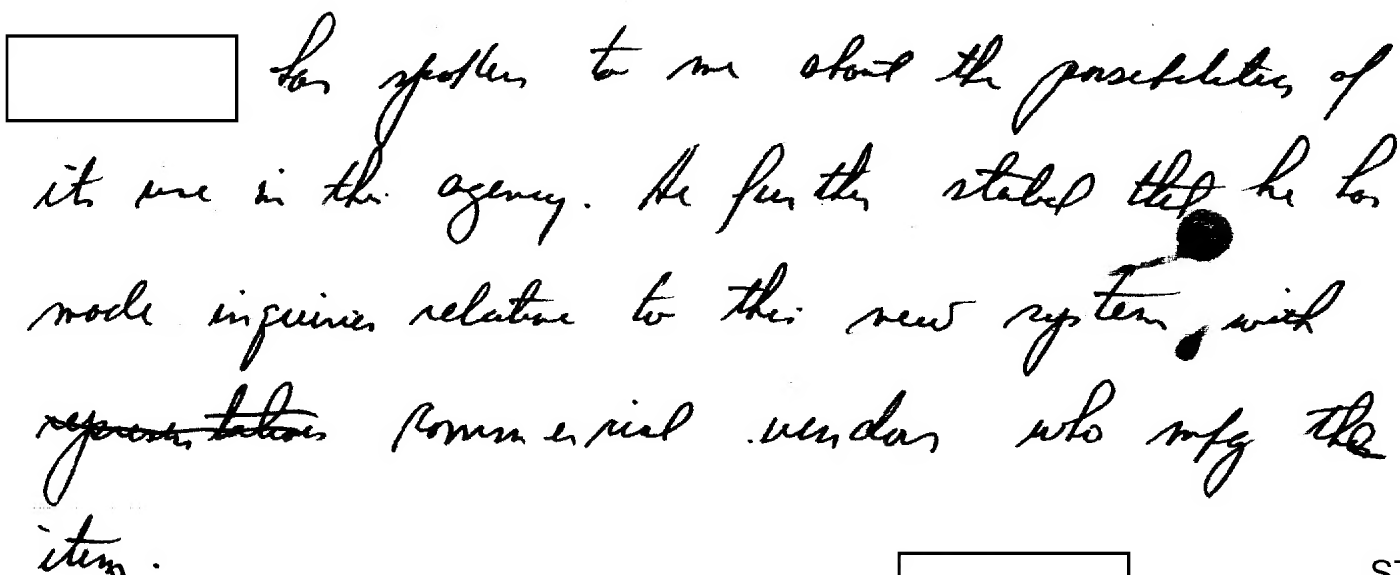 has spoken to me about the possibilities of
its use in this agency. He further stated that he has
made inquiries relative to this new system with
representatives commercial vendors who mfg the
item.
ST